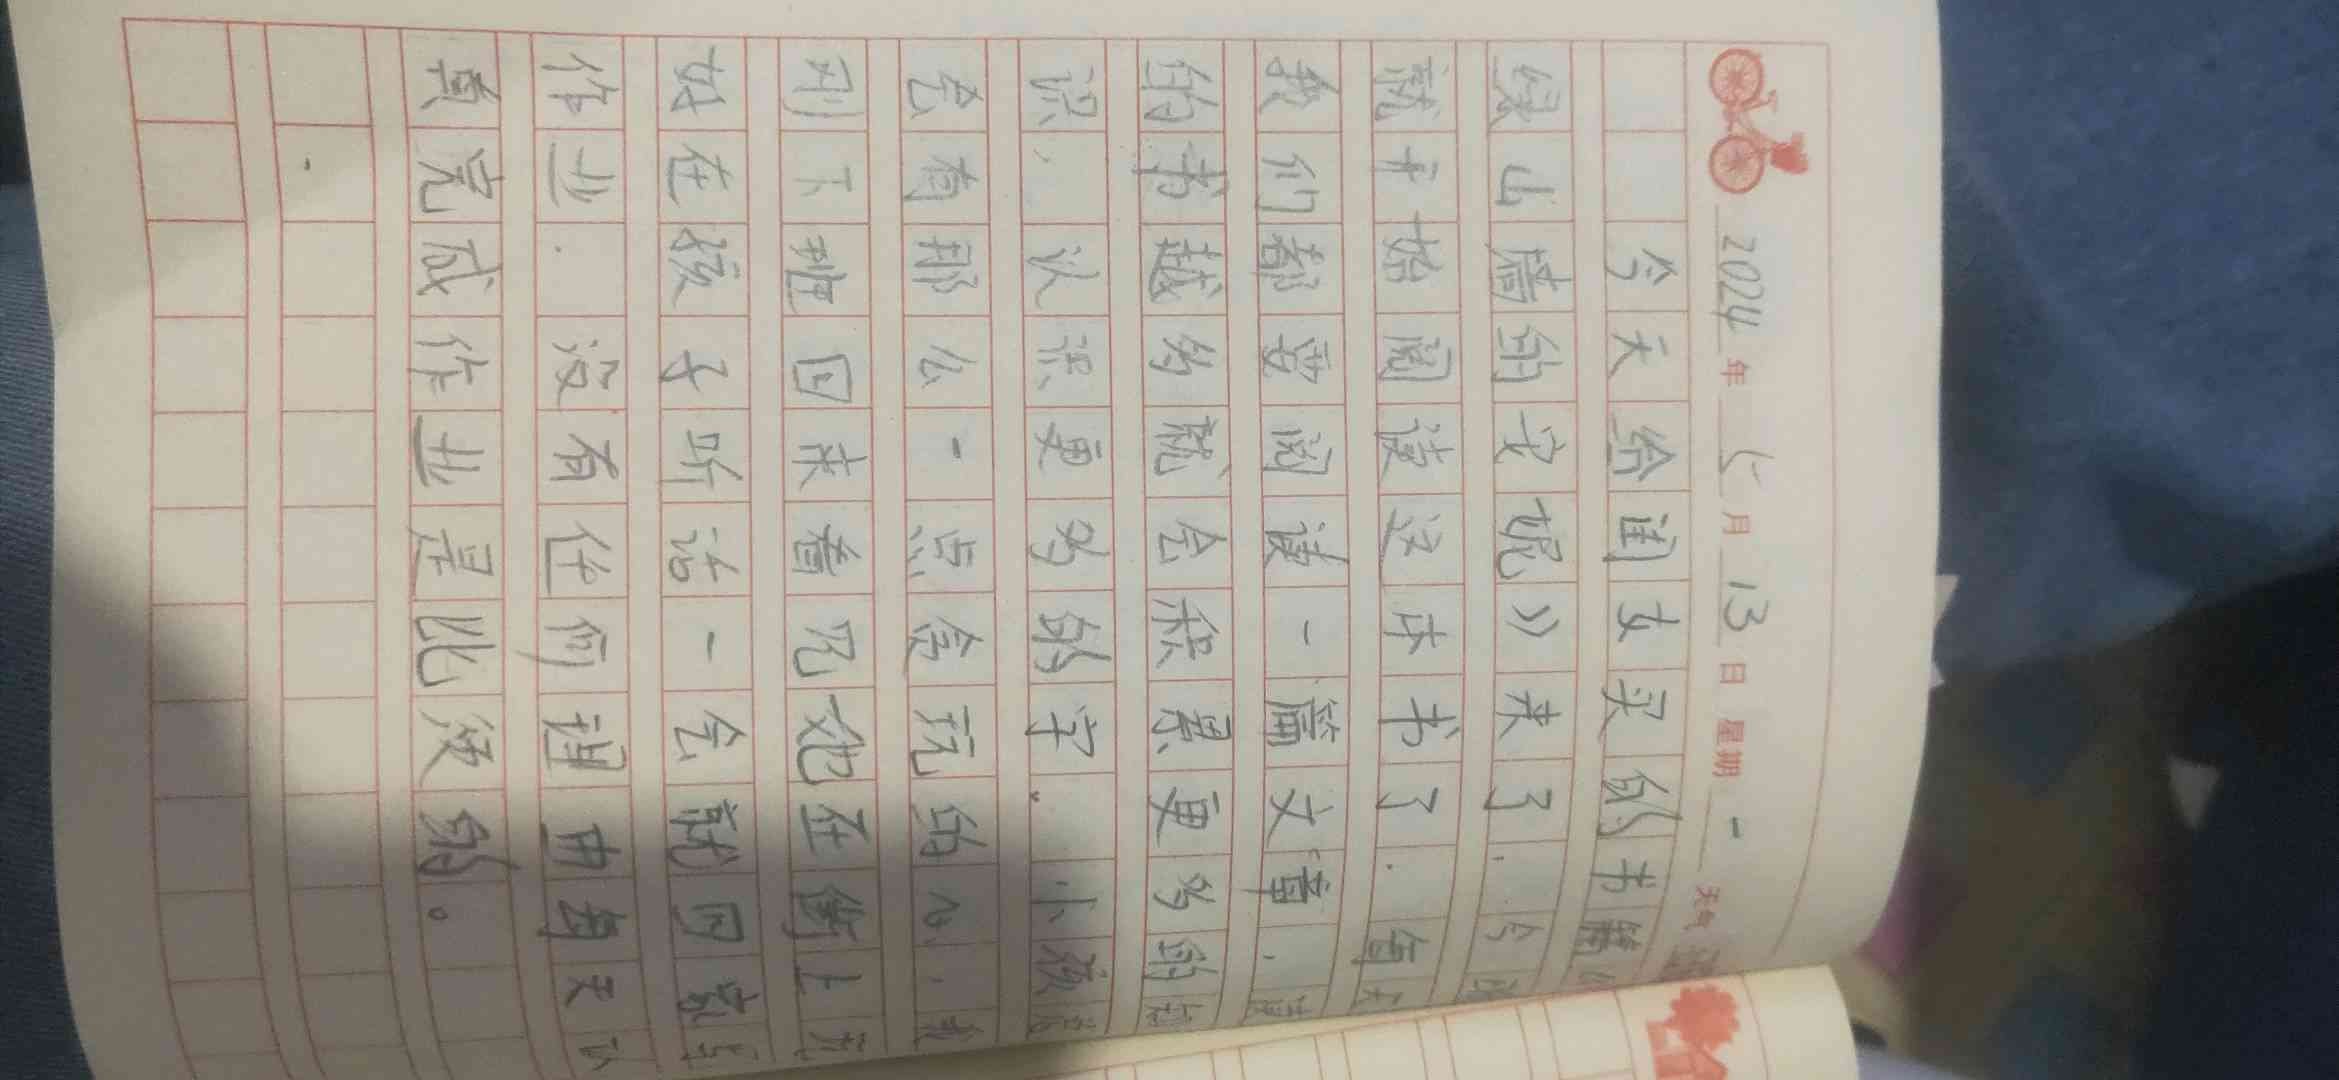 2024年七月13日 星期一 天气
今天给闺女买的书籍《
绿山墙的安妮》来了.今晚
就开始阅读这本书了.每天
我们都要阅读一篇文章.读
的书越多就会积累更多的知
识,认识更多的字。小孩总
会有那么一点贪玩的心.我
刚下班回来看见她在街上玩
好在孩子听话一会就回家写
作业.没有任何理由每天认
真完成作业是比须的。